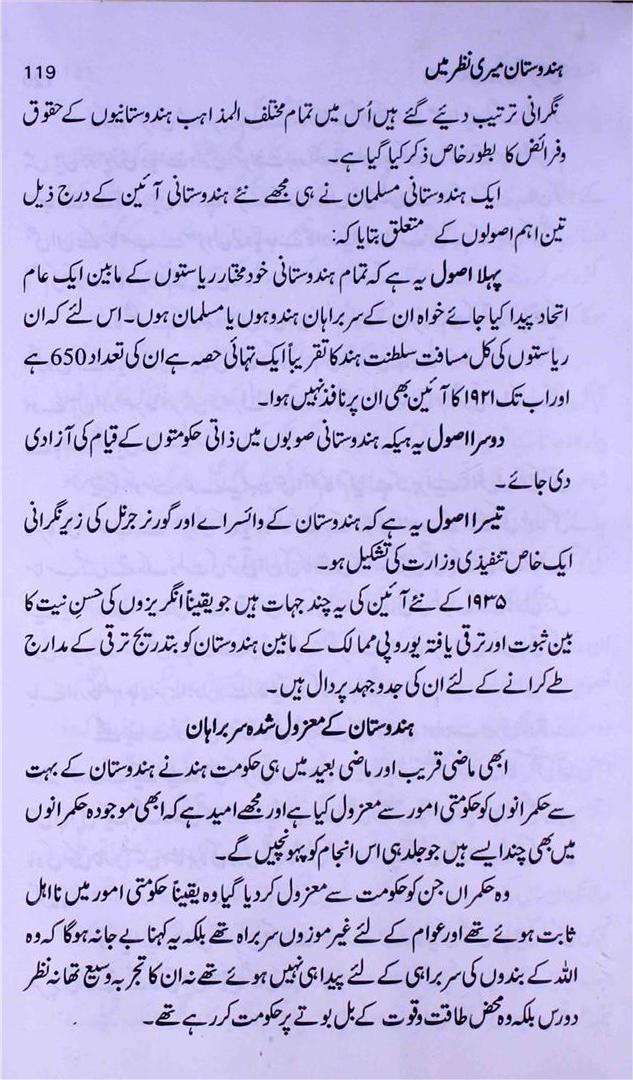 ہندوستان میری نظر میں 119
نگرانی ترتیب دیئے گئے ہیں اُس میں تمام مختلف المذاہب ہندوستانیوں کے حقوق
وفرائض کا بطور خاص ذکر کیا گیا ہے۔
ایک ہندوستانی مسلمان نے ہی مجھے نئے ہندوستانی آئین کے درج ذیل
تین اہم اصولوں کے متعلق بتایا کہ:
پہلا اصول یہ ہے کہ تمام ہندوستانی خود مختار ریاستوں کے مابین ایک عام
اتحاد پیدا کیا جائے خواہ ان کے سربراہان ہندو ہوں یا مسلمان ہوں۔ اس لئے کہ ان
ریاستوں کی کل مسافت سلطنت ہند کا تقریباً ایک تہائی حصہ ہے ان کی تعداد 650 ہے
اور اب تک ۱۹۲۱ کا آئین بھی ان پر نافذ نہیں ہوا۔
دوسرا اصول یہ ہیکہ ہندوستانی صوبوں میں ذاتی حکومتوں کے قیام کی آزادی
دی جائے۔
تیسرا اصول یہ ہے کہ ہندوستان کے وائسرائے اور گورنر جنرل کی زیر نگرانی
ایک خاص تنفیذی وزارت کی تشکیل ہو۔
۱۹۳۵ کے نئے آئین کی یہ چند جہات ہیں جو یقیناً انگریزوں کی حسنِ نیت کا
بین ثبوت اور ترقی یافتہ یوروپی ممالک کے مابین ہندوستان کو بتدریج ترقی کے مدارج
طے کرانے کے لئے ان کی جدوجہد پر دال ہیں۔
ہندوستان کے معزول شدہ سربراہان
ابھی ماضی قریب اور ماضی بعید میں ہی حکومت ہند نے ہندوستان کے بہت
سے حکمرانوں کو حکومتی امور سے معزول کیا ہے اور مجھے امید ہے کہ ابھی موجودہ حکمرانوں
میں بھی چند ایسے ہیں جو جلد ہی اس انجام کو پہونچیں گے۔
وہ حکمراں جن کو حکومت سے معزول کردیا گیا وہ یقیناً حکومتی امور میں نااہل
ثابت ہوئے تھے اور عوام کے لئے غیر موزوں سربراہ تھے بلکہ یہ کہنا بے جا نہ ہوگا کہ وہ
اللہ کے بندوں کی سربراہی کے لئے پیدا ہی نہیں ہوئے تھے نہ ان کا تجربہ وسیع تھا نہ نظر
دورس بلکہ وہ محض طاقت وقوت کے بل بوتے پر حکومت کر رہے تھے۔